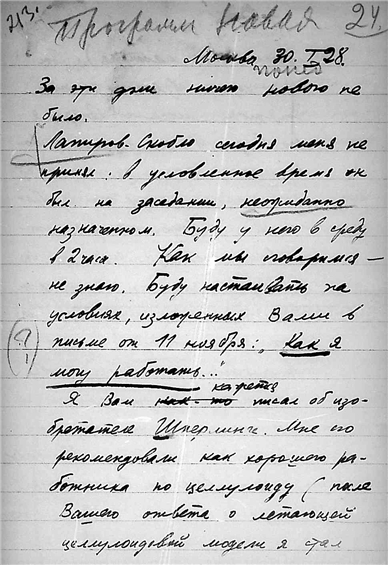 213.
Программ Новая 24.
Москва 30.I 28.
За эти дни ничего нового не
было.
Лапиров-Скобло сегодня меня не
принял: в условленное время он
был на заседании, неожиданно
назначенном. Буду у него в среду
в 2 часа. Как мы сговоримся –
не знаю. Буду настаивать на
условиях, изложенных Вами в
(?!) письме от 11 ноября: „Как я
могу работать..."
кажется
Я Вам как-то писал об изо-
бретателе Шперлинге. Мне его
рекомендовали как хорошего ра-
ботника по целлулоиду (после
Вашего ответа о летающей
целлулоидовой модели я стал